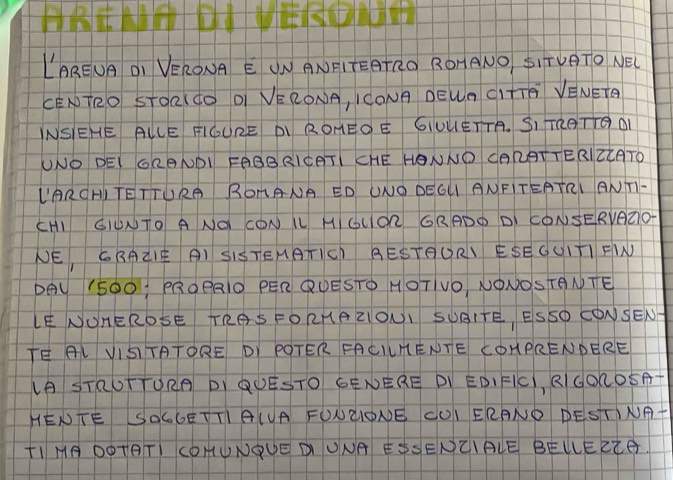 ARENA DI VERONA
L'ARENA DI VERONA È UN ANFITEATRO ROMANO, SITUATO NEL
CENTRO STORICO DI VERONA, ICONA DELLA CITTÀ VENETA
INSIEME ALLE FIGURE DI ROMEO E GIULIETTA. SI TRATTA DI
UNO DEI GRANDI FABBRICATI CHE HANNO CARATTERIZZATO
L'ARCHITETTURA ROMANA ED UNO DEGLI ANFITEATRI ANTI-
CHI GIUNTO A NOI CON IL MIGLIOR GRADO DI CONSERVAZIO-
NE, GRAZIE AI SISTEMATICI RESTAURI ESEGUITI FIN
DAL 1500; PROPRIO PER QUESTO MOTIVO, NONOSTANTE
LE NUMEROSE TRASFORMAZIONI SUBITE, ESSO CONSEN-
TE AL VISITATORE DI POTER FACILMENTE COMPRENDERE
LA STRUTTURA DI QUESTO GENERE DI EDIFICI, RIGOROSA-
MENTE SOGGETTI ALLA FUNZIONE CUI ERANO DESTINA-
TI MA DOTATI COMUNQUE DI UNA ESSENZIALE BELLEZZA.